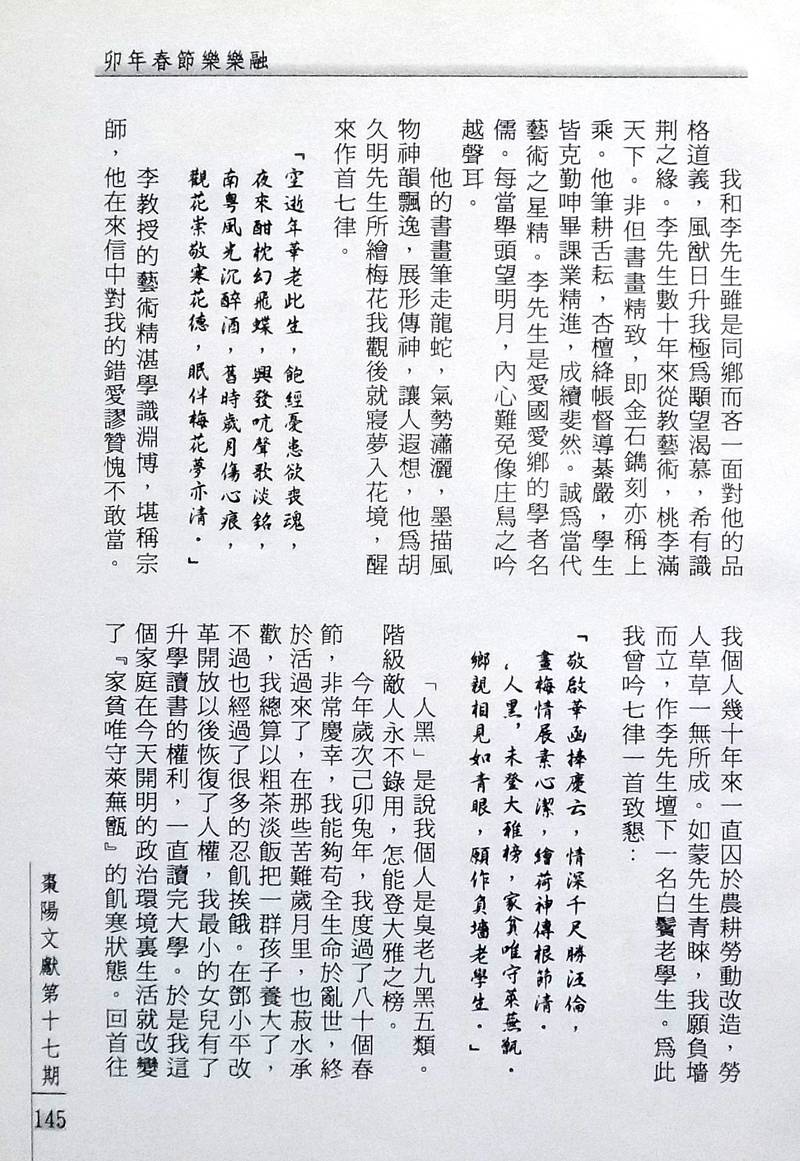 卯年春節樂樂融
我和李先生雖是同鄉而吝一面對他的品
格道義，風猷日升我極爲顒望渴慕，希有識
荆之緣。李先生數十年來從教藝術，桃李滿
天下。非但書畫精致，即金石鐫刻亦稱上
乘。他筆耕舌耘，杏壇絳帳督導綦嚴，學生
皆克勤呻畢課業精進，成績斐然。誠爲當代
藝術之星精。李先生是愛國愛鄉的學者名
儒。每當舉頭望明月，內心難免像庄舄之吟
越聲耳。
他的書畫筆走龍蛇，氣勢瀟灑，墨描風
物神韻飄逸，展形傳神，讓人遐想，他爲胡
久明先生所繪梅花我觀後就寢夢入花境，醒
來作首七律。
「空逝年華老此生，飽經憂患欲喪魂，
夜來酣枕幻飛蝶，興發吭聲歌淡銘，
南粵風光沉醉酒，舊時歲月傷心痕，
觀花崇敬寒花德，眠伴梅花夢亦清。」
李教授的藝術精湛學識淵博，堪稱宗
師，他在來信中對我的錯愛謬贊愧不敢當。
我個人幾十年來一直囚於農耕勞動改造，勞
人草草一無所成。如蒙先生青睞，我願負墻
而立，作李先生壇下一名白鬢老學生。爲此
我曾吟七律一首致懇：
「敬啟華函捧慶云，情深千尺勝汪倫，
畫梅情展素心潔，繪荷神傳根節清。
、人黑，未登大雅榜，家貧唯守萊蕪甑。
鄉親相見如青眼，願作負墻老學生。」
「人黑」是說我個人是臭老九黑五類。
階級敵人永不錄用，怎能登大雅之榜。
今年歲次己卯兔年，我度過了八十個春
節，非常慶幸，我能夠苟全生命於亂世，終
於活過來了，在那些苦難歲月里，也菽水承
歡，我總算以粗茶淡飯把一群孩子養大了，
不過也經過了很多的忍飢挨餓。在鄧小平改
革開放以後恢復了人權，我最小的女兒有了
升學讀書的權利，一直讀完大學。於是我這
個家庭在今天開明的政治環境裏生活就改變
了『家貧唯守萊蕪甑』的飢寒狀態。回首往
棗陽文獻第十七期
145